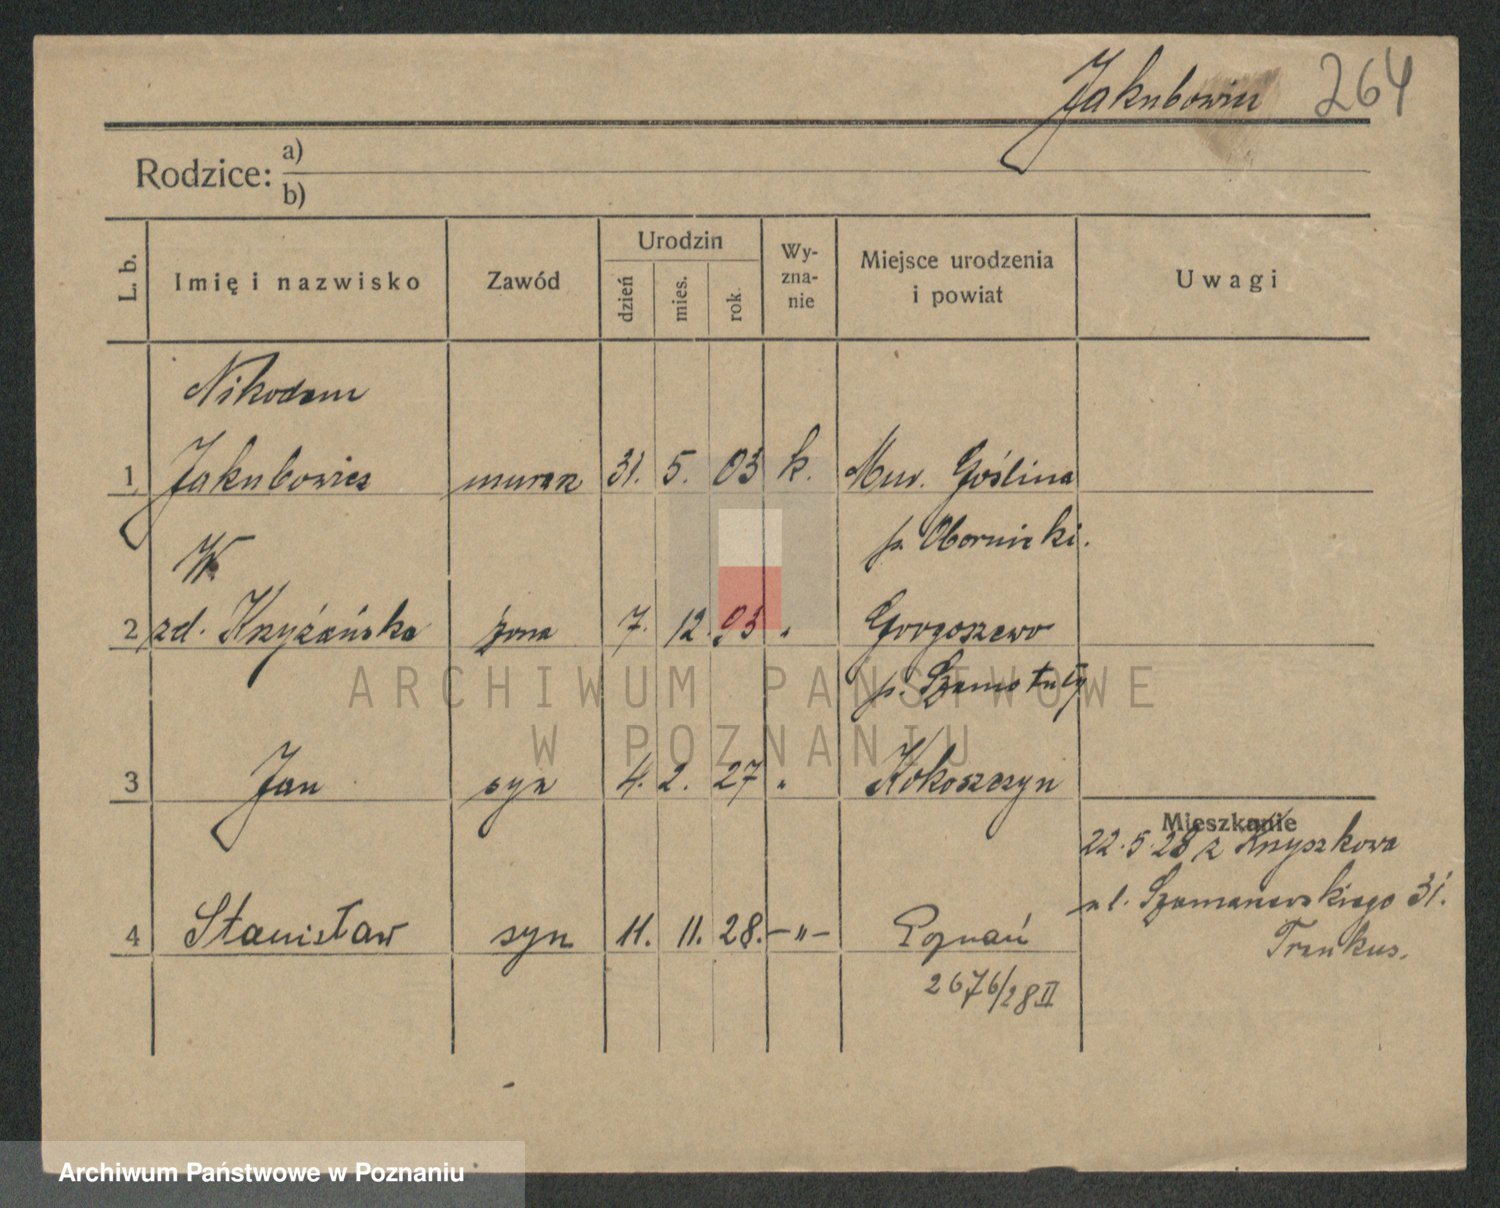 Jakubowicz 264
Rodzice: a)
b)
L. b. Imię i nazwisko Zawód Urodzin dzień mies. rok. Wyznanie Miejsce urodzenia i powiat Uwagi
Nikodem
1 Jakubowicz murarz 31. 5. 03 k. Mur. Goślina
p. Obornicki.
W
2 zd. Krzyżańska żona 7. 12. 93 " Gorgoszewo
p. Szamotuły
3 Jan syn 4. 2. 27 " Kokoszczyn
Mieszkanie
22.5.28 z Krzyszkowa
ul. Szamarzewskiego 31.
4 Stanisław syn 11. 11. 28. -"- Poznań
Trenkus.
2676/28 II
ARCHIWUM PAŃSTWOWE
W POZNANIU
Archiwum Państwowe w Poznaniu